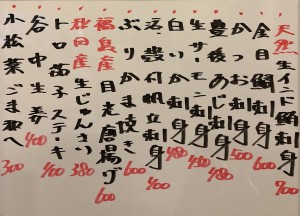 天然生インド鮪刺身 700
金目鯛刺身 600
かつお刺身 500
豊後あじ刺身 480
生サーモン刺身 450
白いか刺身 480
活〆帆立刺身 400
ぶりかま焼き 600
福島産目光唐揚げ 600
秋田産生じゅんさい 380
トロ茄子ステーキ 400
谷中生姜 400
小松菜ごま和へ 300